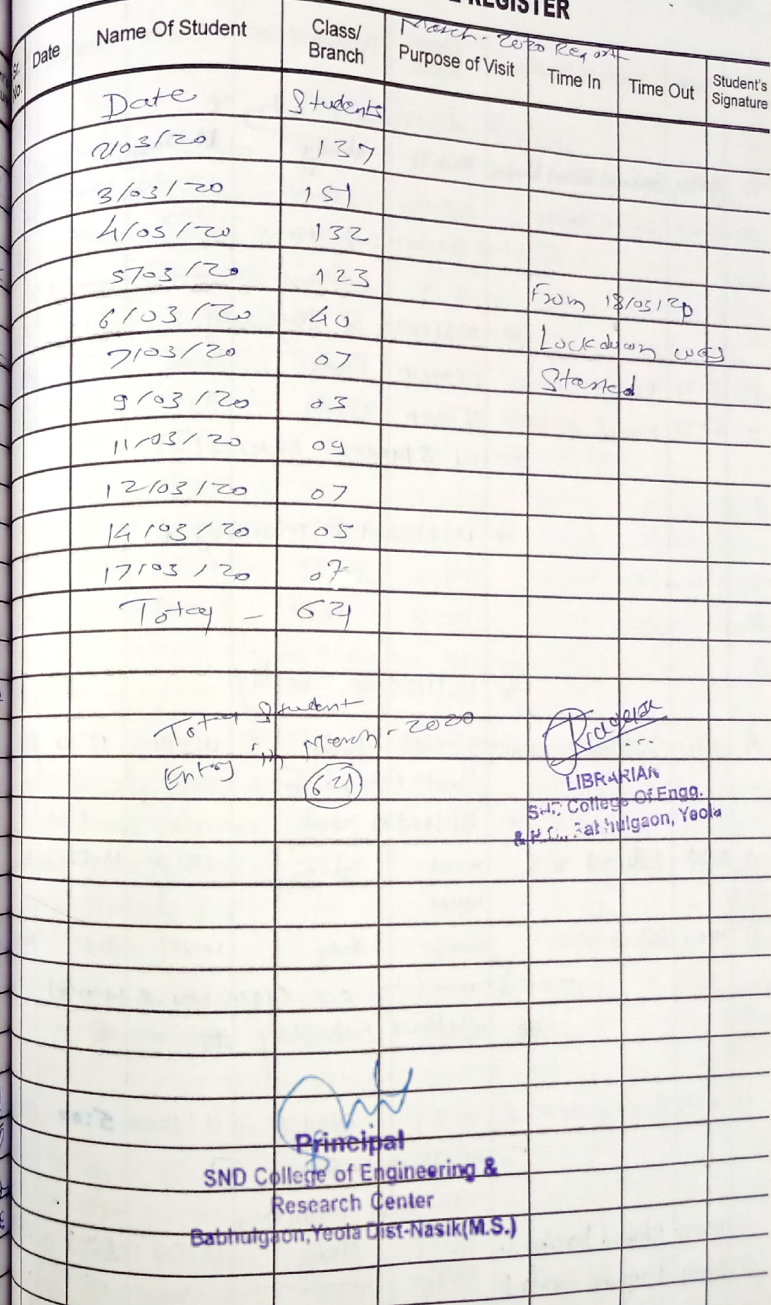 REGISTER
March-2020 Report
Sr. No. Date Name Of Student Class/ Branch Purpose of Visit Time In Time Out Student's Signature
Date Students
2/03/20 137
3/03/20 151
4/03/20 132
5/03/20 123
6/03/20 40
7/03/20 07
9/03/20 03
11/03/20 09
12/03/20 07
14/03/20 05
17/03/20 07
Total - 621
From 18/03/20
Lockdown was
Started
Total Student
Entry in March-2020
621
LIBRARIAN
SND College Of Engg.
& R.C., Babhulgaon, Yeola
Principal
SND College of Engineering &
Research Center
Babhulgaon, Yeola Dist-Nasik(M.S.)